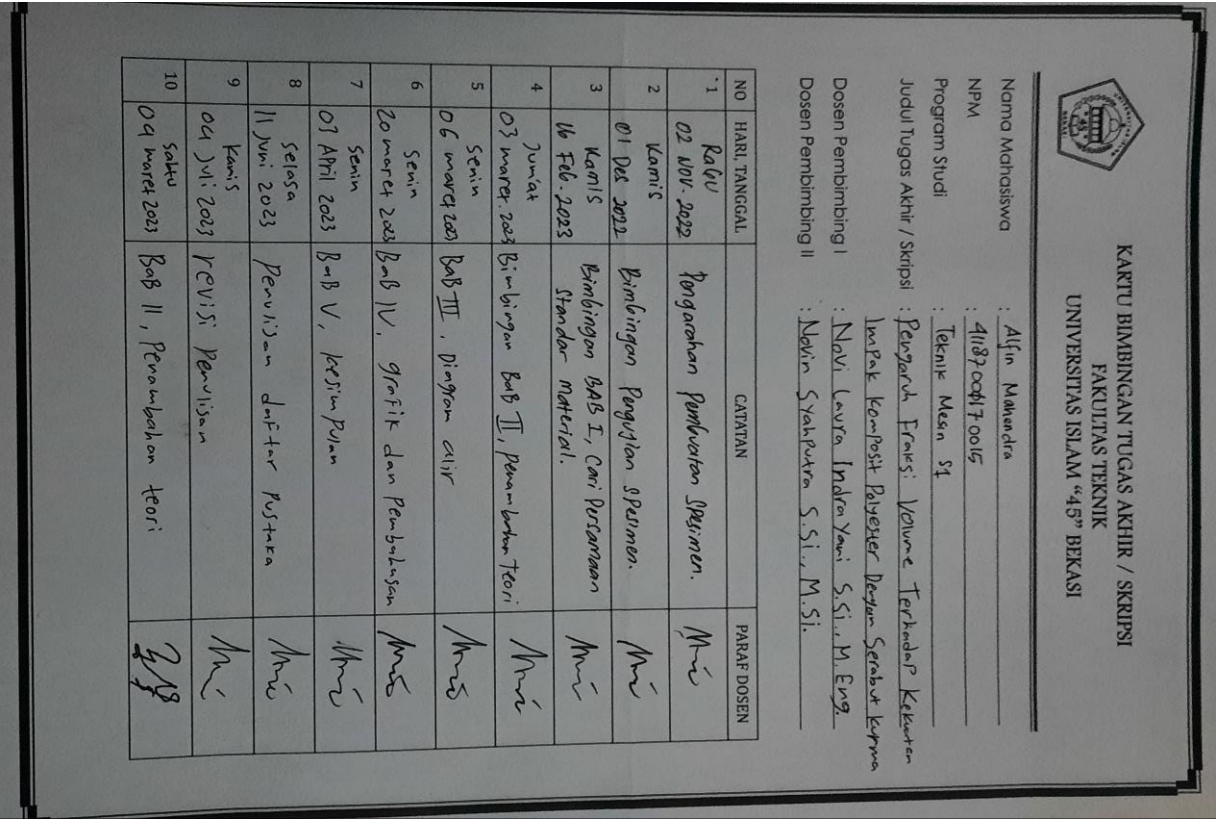 KARTU BIMBINGAN TUGAS AKHIR / SKRIPSI
FAKULTAS TEKNIK
UNIVERSITAS ISLAM "45" BEKASI
Nama Mahasiswa : Alfin Mahendra
NPM : 41187001170015
Program Studi : Teknik Mesin S1
Judul Tugas Akhir / Skripsi : Pengaruh Fraksi Volume Terhadap Kekuatan
Impak Komposit Polyester Dengan Serabut kurma
Dosen Pembimbing I : Novi Laura Indra Yani S.Si., M. Eng.
Dosen Pembimbing II : Novin Syahputra S.Si., M.Si.
NO HARI, TANGGAL CATATAN PARAF DOSEN
1 RaBU
02 NOV. 2022 Pengarahan Pembuatan Spesimen.
2 Kamis
01 Des 2022 Bimbingan Pengujian Spesimen.
3 Kamis Bimbingan BAB I, Cari Persamaan
16 Feb. 2023 Standar Material.
4 Jum'at
03 maret. 2023 Bimbingan BaB II, penambahan Teori
5 Senin
06 maret 2023 BaB III, Diagram alir
6 Senin
20 maret 2023 BaB IV, grafik dan Pembahasan
7 Senin
03 April 2023 BaB V, kesimpulan
8 Selasa
11 Juni 2023 Penulisan daftar Pustaka
9 Kamis
04 Juli 2023 revisi Penulisan
10 Sabtu
09 maret 2023 BaB II, Penambahan teori